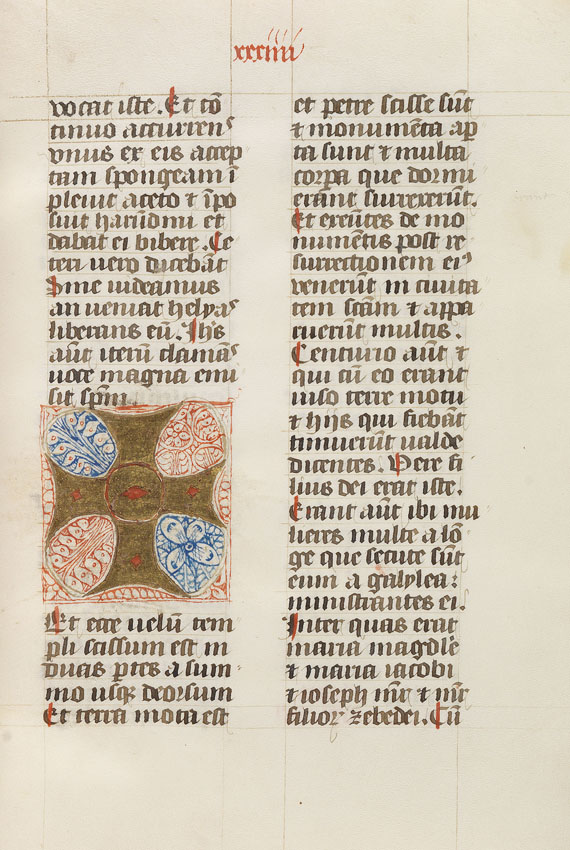 xxxiiii
vocat iste. Et cō
tinuo accurrens
vnus ex eis accep
tam spongeam ī
pleuit aceto et īpo
suit harūdini et
dabat ei bibere. Ce
teri uero dicebāt
Sine uideamus
an ueniat helyas
liberans eū. Ihs
aūt iterū clamās
uoce magna emi
sit spm.
Et ecce uelū tem
pli scissum est in
duas ꝑtes a sum
mo usqꝫ deorsum
Et terra mota est
et petre scisse sūt
⁊ monumēta ap
ta sunt ⁊ multa
corꝑa que dormi
erant surrexerūt.
Et exeūtes de mo
numētis post re
surrectionem eiꝰ
venerūt in ciuita
tem scām ⁊ appa
ruerūt multis.
Centurio aūt ⁊
qui cū eo erant
uiso terre motu
⁊ hijs qui fiebāt
timuerūt ualde
dicentes. Vere fi
lius dei erat iste.
Erant aūt ibi mu
lieres multe a lō
ge que secute sūt
eum a galylea:
ministrantes ei.
Inter quas erat
maria magdal̄e
⁊ maria iacobi
⁊ ioseph mr̄ ⁊ mr̄
filiorꝝ zebedei. Cū